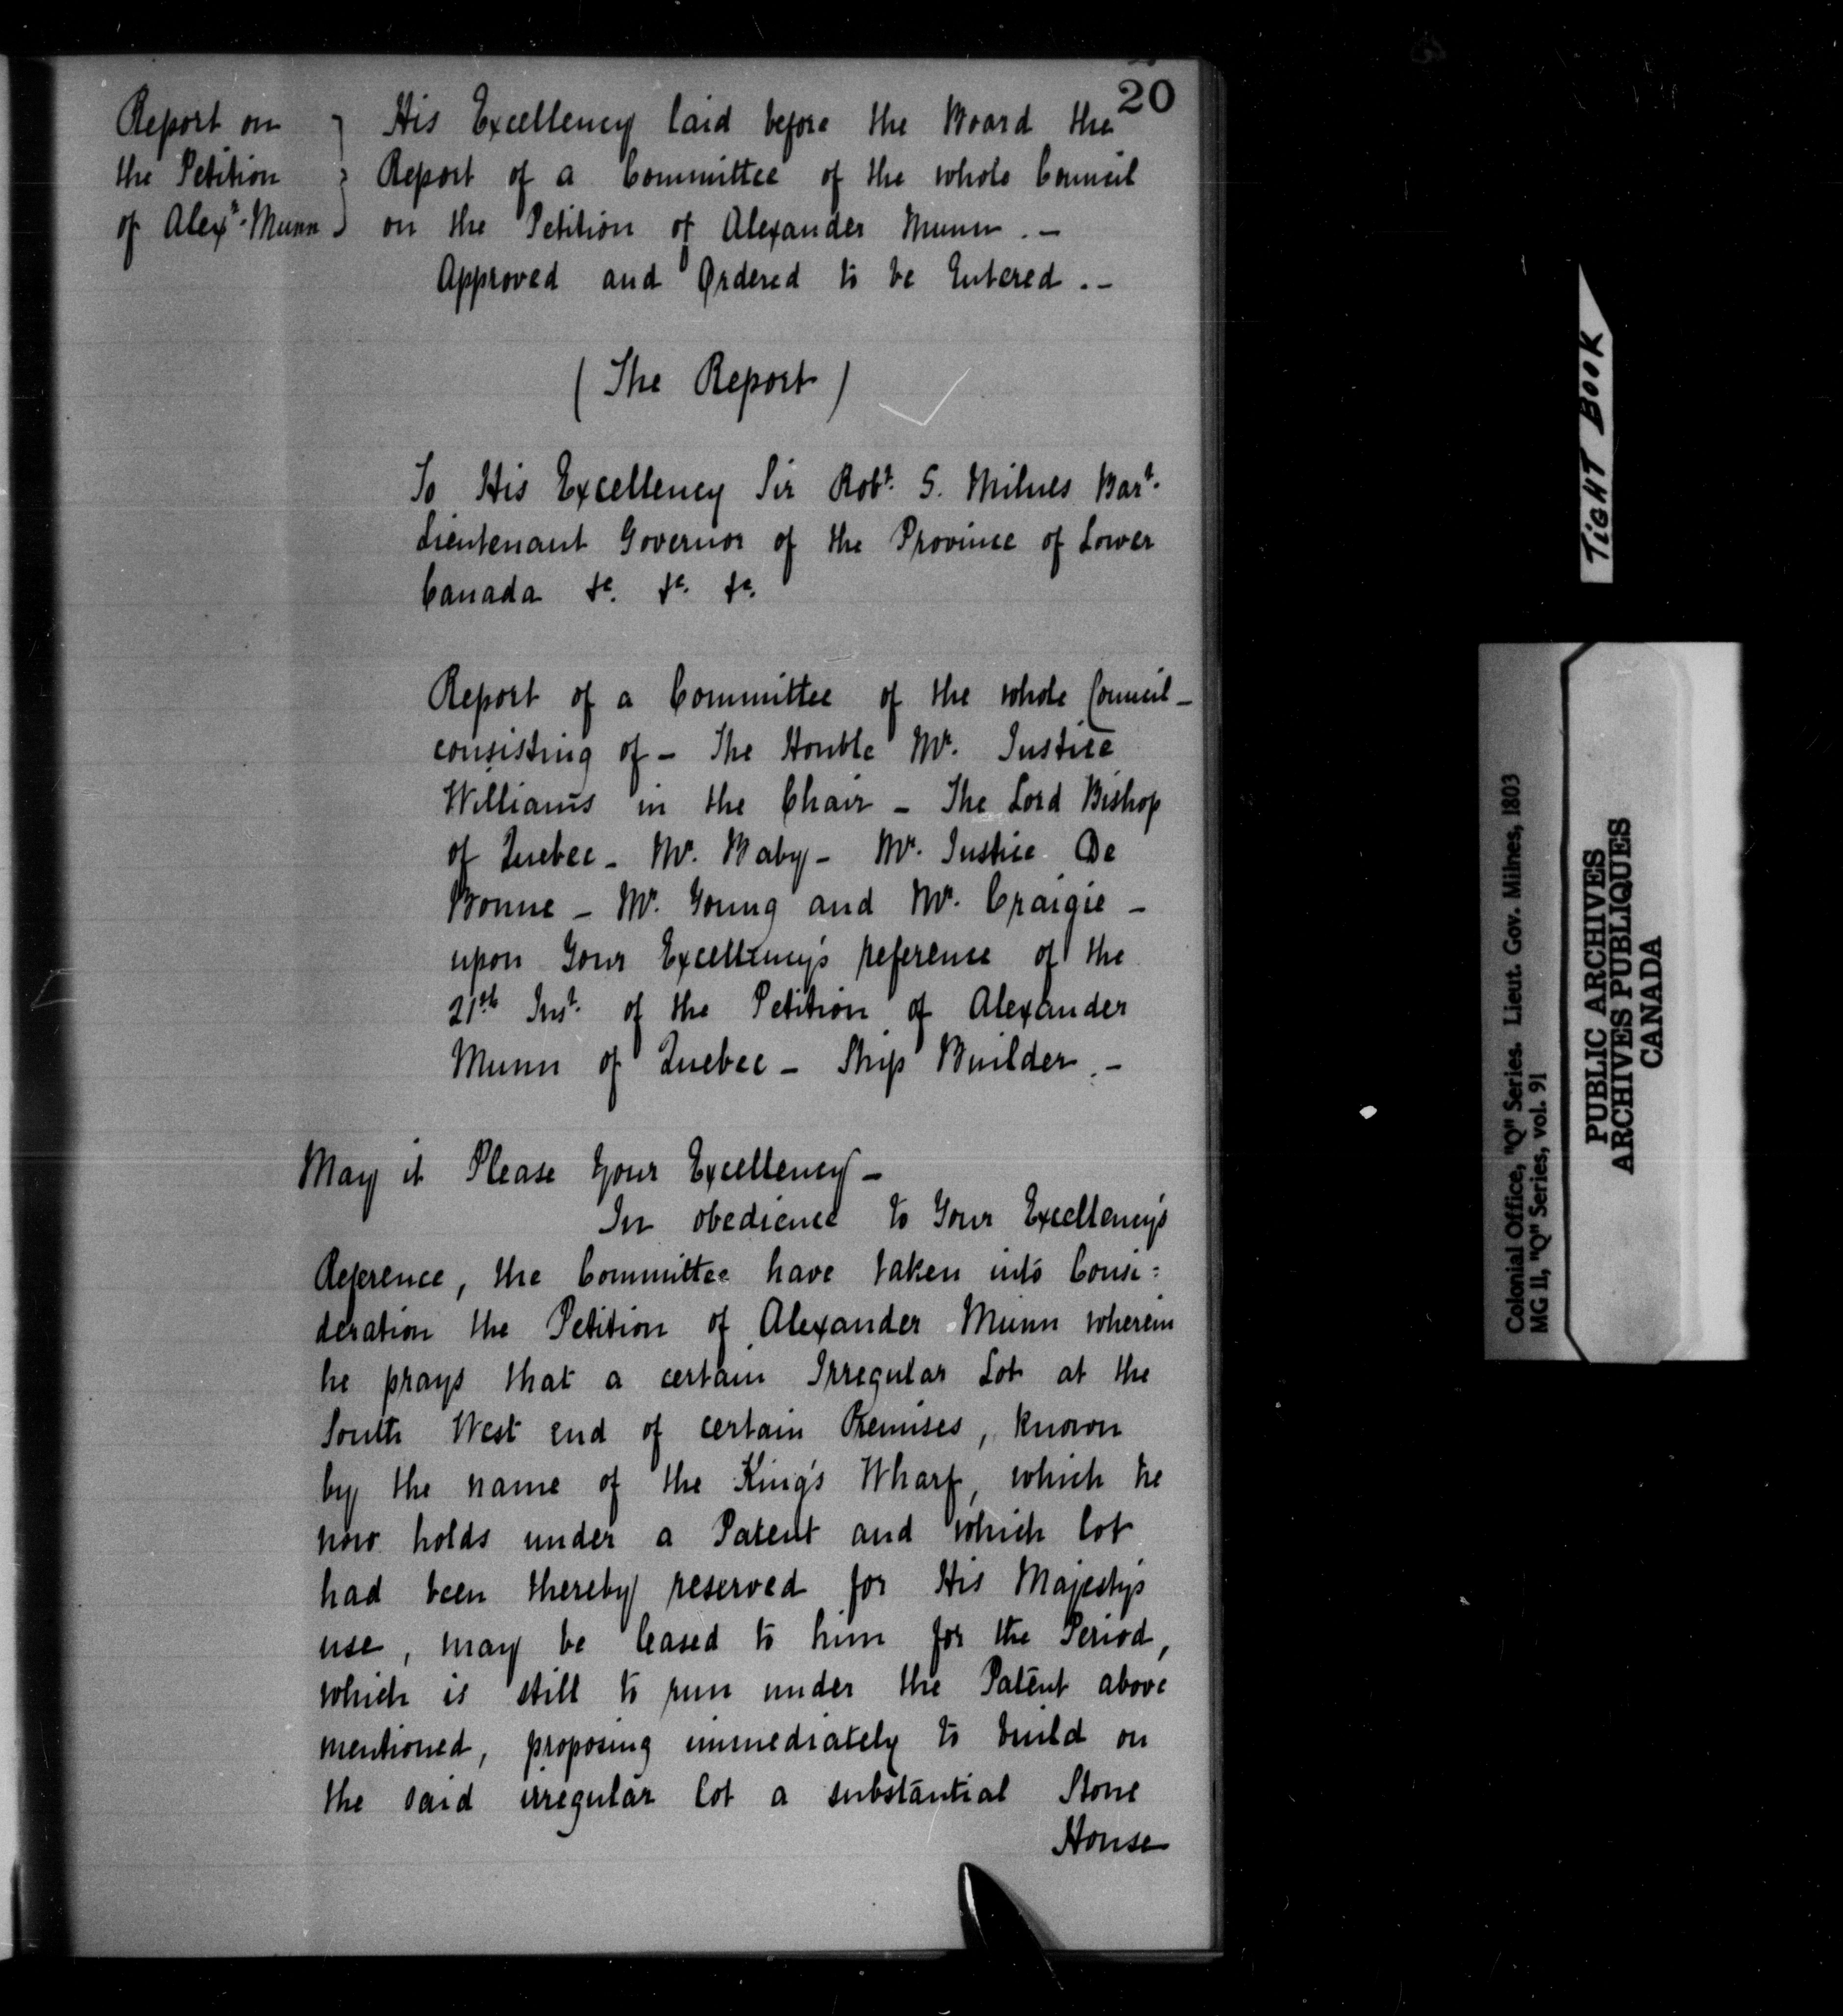 20
Report on
the Petition
of Alexr. Munn
His Excellency laid before the Board the
Report of a Committee of the whole Council
on the Petition of Alexander Munn. -
Approved and Ordered to be Entered. -
(The Report)
To His Excellency Sir Robt. S. Milnes Bart.
Lieutenant Governor of the Province of Lower
Canada &c. &c. &c.
Report of a Committee of the whole Council -
consisting of - The Honble Mr. Justice
Williams in the Chair - The Lord Bishop
of Quebec - Mr. Baby - Mr. Justice De
Bonne - Mr. Young and Mr. Craigie -
upon Your Excellency's reference of the
21st Inst. of the Petition of Alexander
Munn of Quebec - Ship Builder. -
May it Please Your Excellency -
In obedience to Your Excellency's
Reference, the Committee have taken into Consi:
deration the Petition of Alexander Munn wherein
he prays that a certain Irregular Lot at the
South West end of certain Premises, known
by the name of the King's Wharf, which he
now holds under a Patent and which lot
had been thereby reserved for His Majesty's
use, may be leased to him for the Period,
which is still to run under the Patent above
mentioned, proposing immediately to build on
the said irregular lot a substantial Stone
House
TIGHT BOOK
Colonial Office, "Q" Series. Lieut. Gov. Milnes, 1803
MG 11, "Q" Series, vol. 91
PUBLIC ARCHIVES
ARCHIVES PUBLIQUES
CANADA